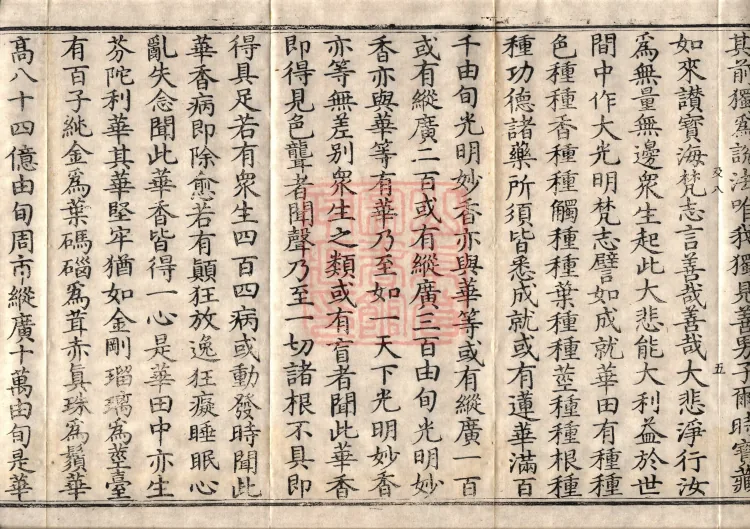 其前獨爲說法唯我獨見善男子爾時寶藏
如來讃寶海梵志言善哉善哉大悲淨行汝
爲無量無邊衆生起此大悲能大利益於世
間中作大光明梵志譬如成就華田有種種
色種種香種種觸種種葉種種莖種種根種
種功德諸藥所須皆悉成就或有蓮華滿百
千由旬光明妙香亦與華等或有縱廣一百
或有縱廣二百或有縱廣三百由旬光明妙
香亦與華等有華乃至如一天下光明妙香
亦等無差別衆生之類或有盲者聞此華香
即得見色聾者聞聲乃至一切諸根不具即
得具足若有衆生四百四病或動發時聞此
華香病即除愈若有顚狂放逸狂癡睡眠心
亂失念聞此華香皆得一心是華田中亦生
芬陀利華其華堅牢猶如金剛瑠璃爲莖臺
有百子純金爲葉碼碯爲茸赤眞珠爲鬚華
高八十四億由旬周帀縱廣十萬由旬是華